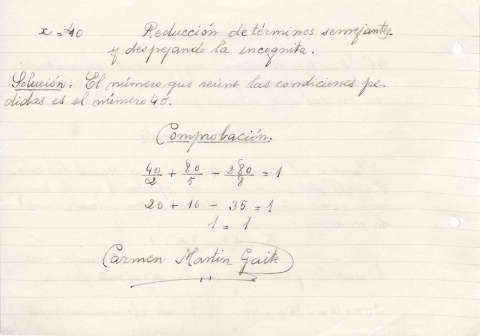 x = 40 Reducción de términos semejantes
y despejando la incognita.
Solución. El número que reúne las condiciones pe-
didas es el número 40.
Comprobación.
40/2 + 80/5 - 280/8 = 1
20 + 16 - 35 = 1
1 = 1
Carmen Martín Gaite